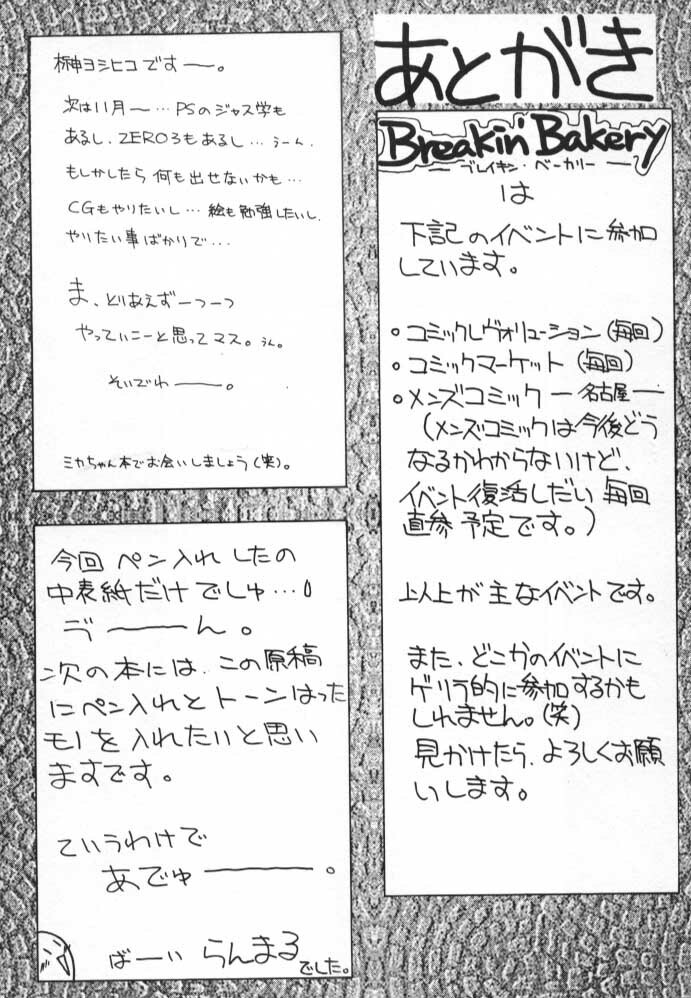 あとがき
Breakin' Bakery
ブレイキン・ベーカリー
は
下記のイベントに参加
しています。
○コミックレヴォリューション(毎回)
○コミックマーケット(毎回)
○メンズコミック ー名古屋ー
(メンズコミックは今後どう
なるかわからないけど、
イベント復活しだい毎回
直参予定です。)
以上が主なイベントです。
また、どこかのイベントに
ゲリラ的に参加するかも
しれません。(笑)
見かけたら、よろしくお願
いします。
榊ヨシヒコですー。
次は11月〜…PSのジャス学も
あるし、ZERO3もあるし…うーん、
もしかしたら何も出せないかも…
CGもやりたいし…絵も勉強したいし、
やりたい事ばかりで…
ま、とりあえずーつーつ
やっていこーと思ってマス。うん。
そいでわー。
ミカちゃん本でお会いしましょう(笑)。
今回ペン入れしたの
中表紙だけでしゅ…
ゔーーん。
次の本には、この原稿
にペン入れとトーンはった
モノを入れたいと思い
ますです。
ていうわけで
あでゅー。
ばーい らんまるでした。